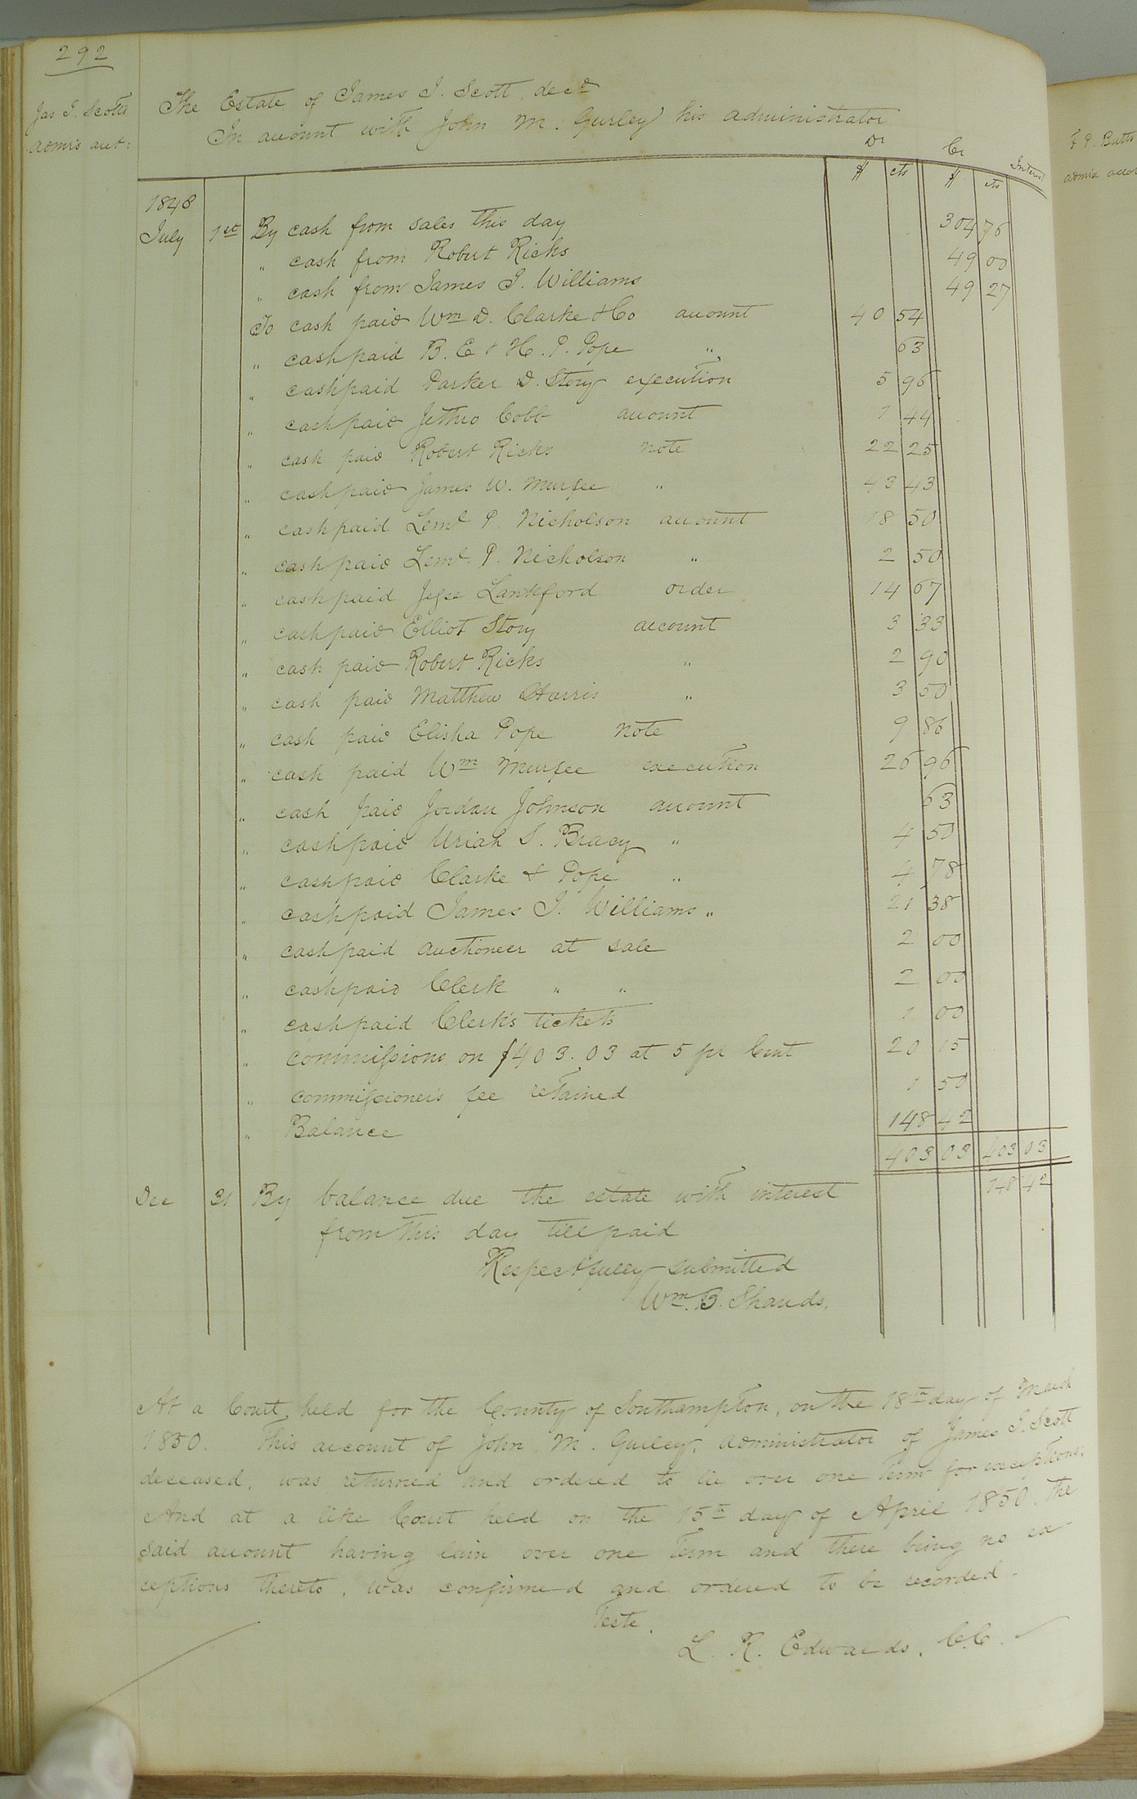 292
Jas J. Scotts
admrs acct:
The Estate of James J. Scott decd
In account with John M. Gurley his administrator
Dr Cr Interest
$ cts $ cts
1848
July 1st By cash from sales this day 304 76
" cash from Robert Ricks 49 00
" cash from James J. Williams 49 27
To cash paid Wm D. Clarke & Co account 40 54
" cash paid B. E. & H. P. Pope " 63
" cash paid Parker D. Story execution 5 96
" cash paid Jethro Cobb account 1 44
" cash paid Robert Ricks note 22 25
" cash paid James W. Murfee " 43 43
" cash paid Leml P. Nicholson account 18 50
" cash paid Leml. P. Nicholson " 2 50
" cash paid Jesse Lankford order 14 67
" cash paid Elliot Story account 3 33
" cash paid Robert Ricks " 2 90
" cash paid Matthew Harris " 3 50
" cash paid Elisha Pope note 9 86
" cash paid Wm Murfee execution 26 96
" cash paid Jordan Johnson account 63
" cash paid Uriah S. Bracy " 4 50
" cash paid Clarke & Pope " 4 78
" cash paid James J. Williams " 21 38
" cash paid auctioneer at sale 2 00
" cash paid Clerk " " 2 00
" cash paid Clerk's tickets 1 00
" commissions on $403.03 at 5 pr Cent 20 15
" commissioner's fee retained 1 50
" Balance 148 42
403 03 403 03
Dec 31 By balance due the estate with interest 148 42
from this day till paid
Respectfully submitted
Wm. B. Shands.
At a Court held for the County of Southampton, on the 18th day of March
1850. This account of John M. Gurley, administrator of James J. Scott
deceased, was returned and ordered to lie over one Term for exceptions.
And at a like Court held on the 15th day of April 1850. the
said account having lain over one Term and there being no ex
ceptions thereto, was confirmed and ordered to be recorded.
Teste.
L. R. Edwards, C.C.
admix accou